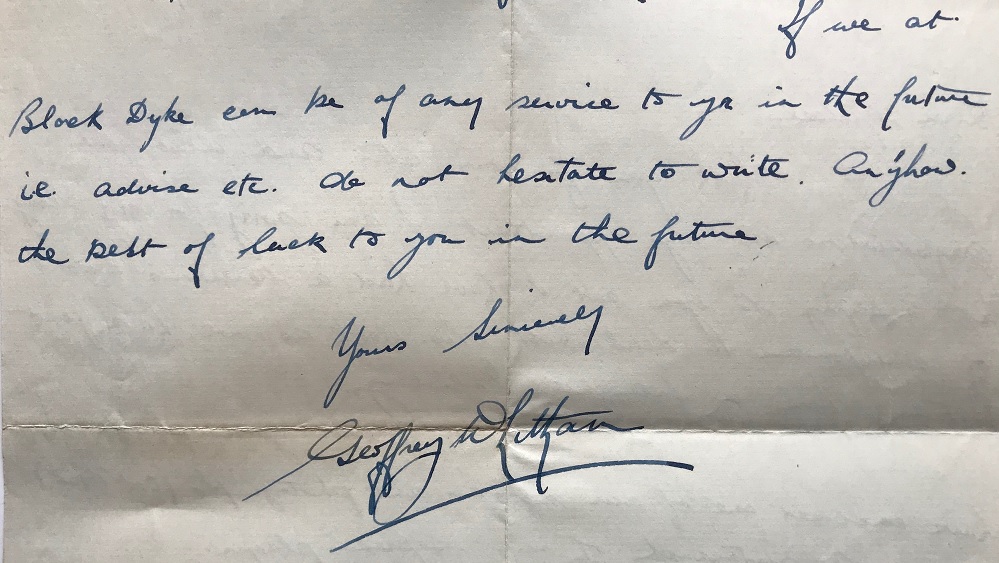 If we at
Black Dyke can be of any service to yr in the future
i.e. advise etc. do not hesitate to write. Anyhow.
the best of luck to you in the future,
Yours Sincerely
Geoffrey Whitham